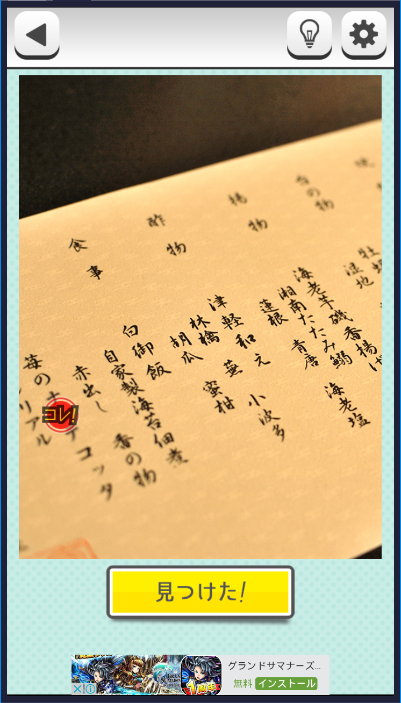 台の物
湿地
揚物
海老芋磯香揚げ 海老塩
湘南たたみ鰯 青唐
蓮根
酢物
津軽和え 蕪 小波多
林檎 蜜柑
胡瓜
食事
白御飯
自家製海苔佃煮
赤出し 香の物
苺の
リアル
コッタ
コレ!
見つけた!
グランドサマナーズ…
無料 インストール